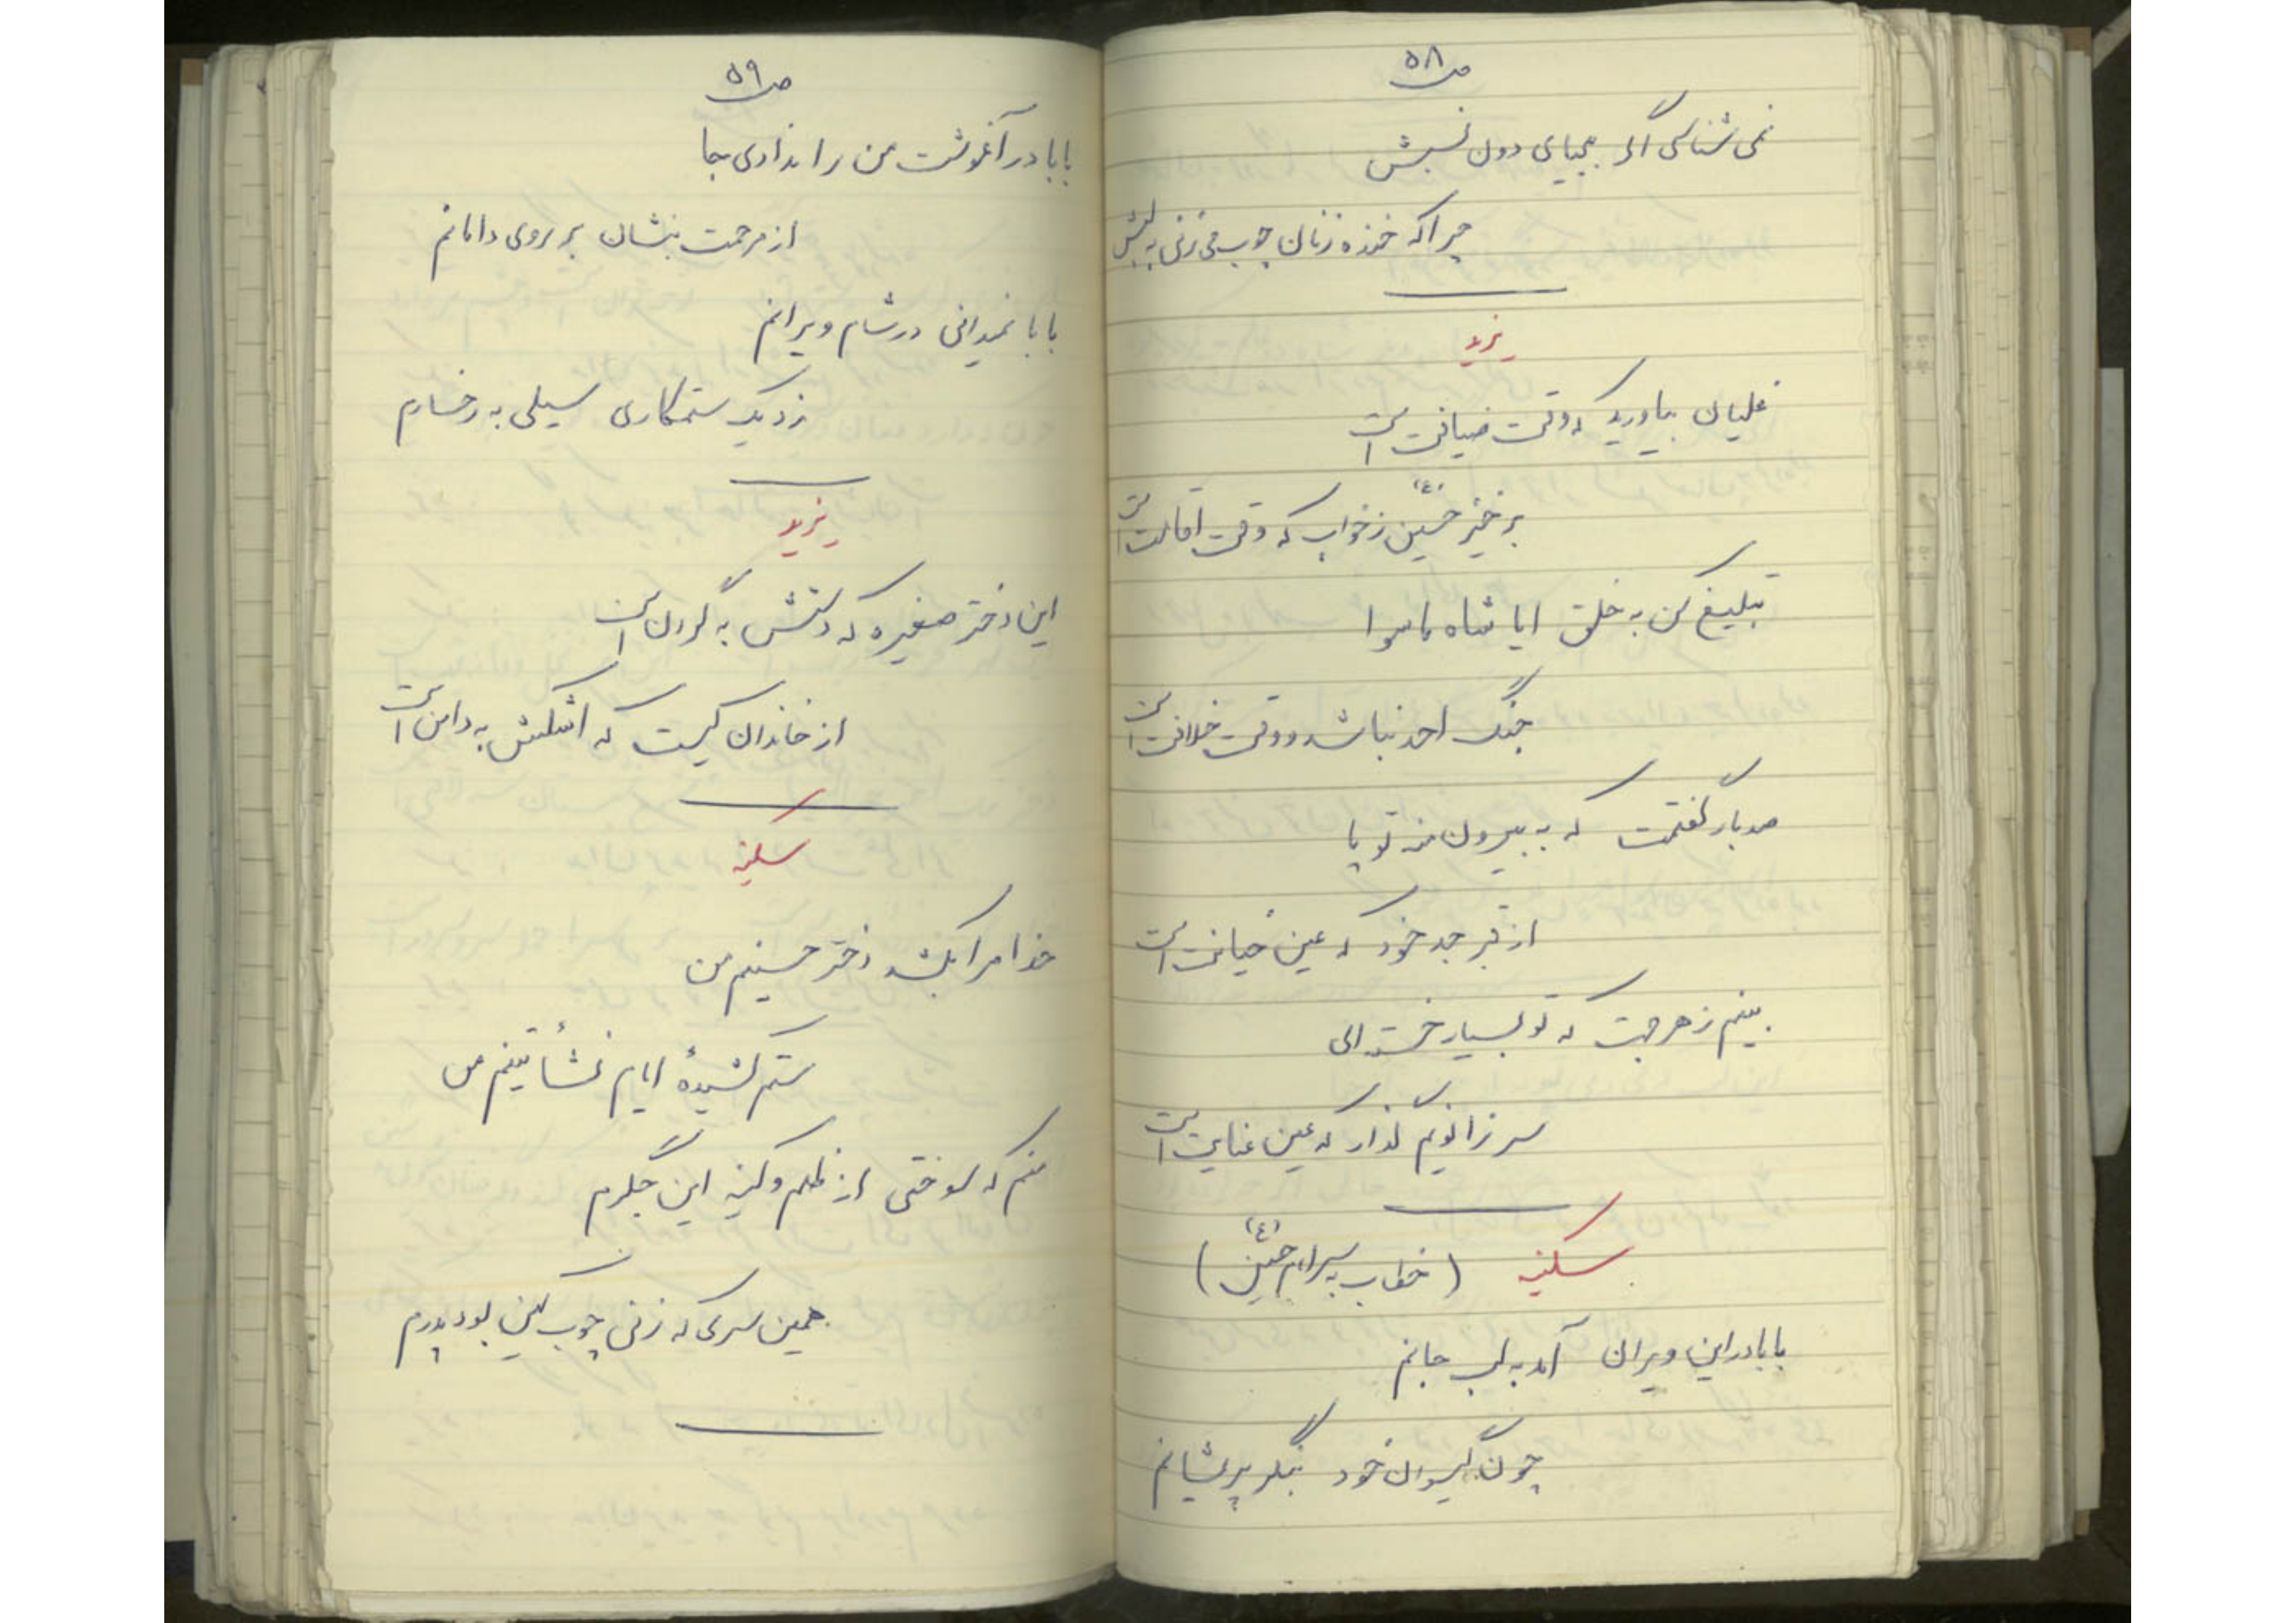 ص ۵۸
نمی شناسی اگر بیحیای دون نسبش
چرا که خنده زنان چوب می زنی به لبش
یزید
غلیان بیاورید که وقت ضیافت است
برخیز حسین (ع) ز خواب که وقت اقامت است
تبلیغ کن به خلق ایا شاه ماسوا
جنگ احد نباشد و وقت خلافت است
صد بار گفتمت که به بیرون منه تو پا
از قبر جد خود که عین خیانت است
بینم ز هر جهت که تو بسیار خسته‌ای
سر زانویم گذار که عین عنایت است
سکینه (خطاب به سر امام حسین (ع))
بابا در این ویران آمد به لب جانم
چون گیسوان خود بنگر پریشانم
ص ۵۹
بابا در آغوشت من را ندادی جا
از مرحمت بنشان بر روی دامانم
بابا نمیدانی در شام ویرانم
زد یک ستمکاری سیلی به رخسارم
یزید
این دختر صغیره که دستش به گردن است
از خاندان کیست که اشکش به دامن است
سکینه
خدا مرا بکشد دختر حسینم من
ستم کشیدهٔ ایام نشأتینم من
منم که سوختی از ظلم و کینه این جگرم
همین سری که زنی چوب کین بود پدرم